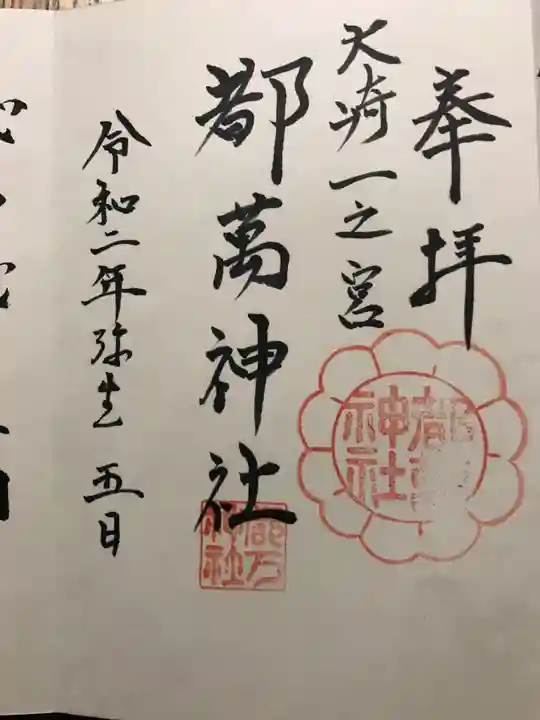 奉拝
大崎一之宮
都萬神社
令和二年弥生五日
都萬神社
都万神社